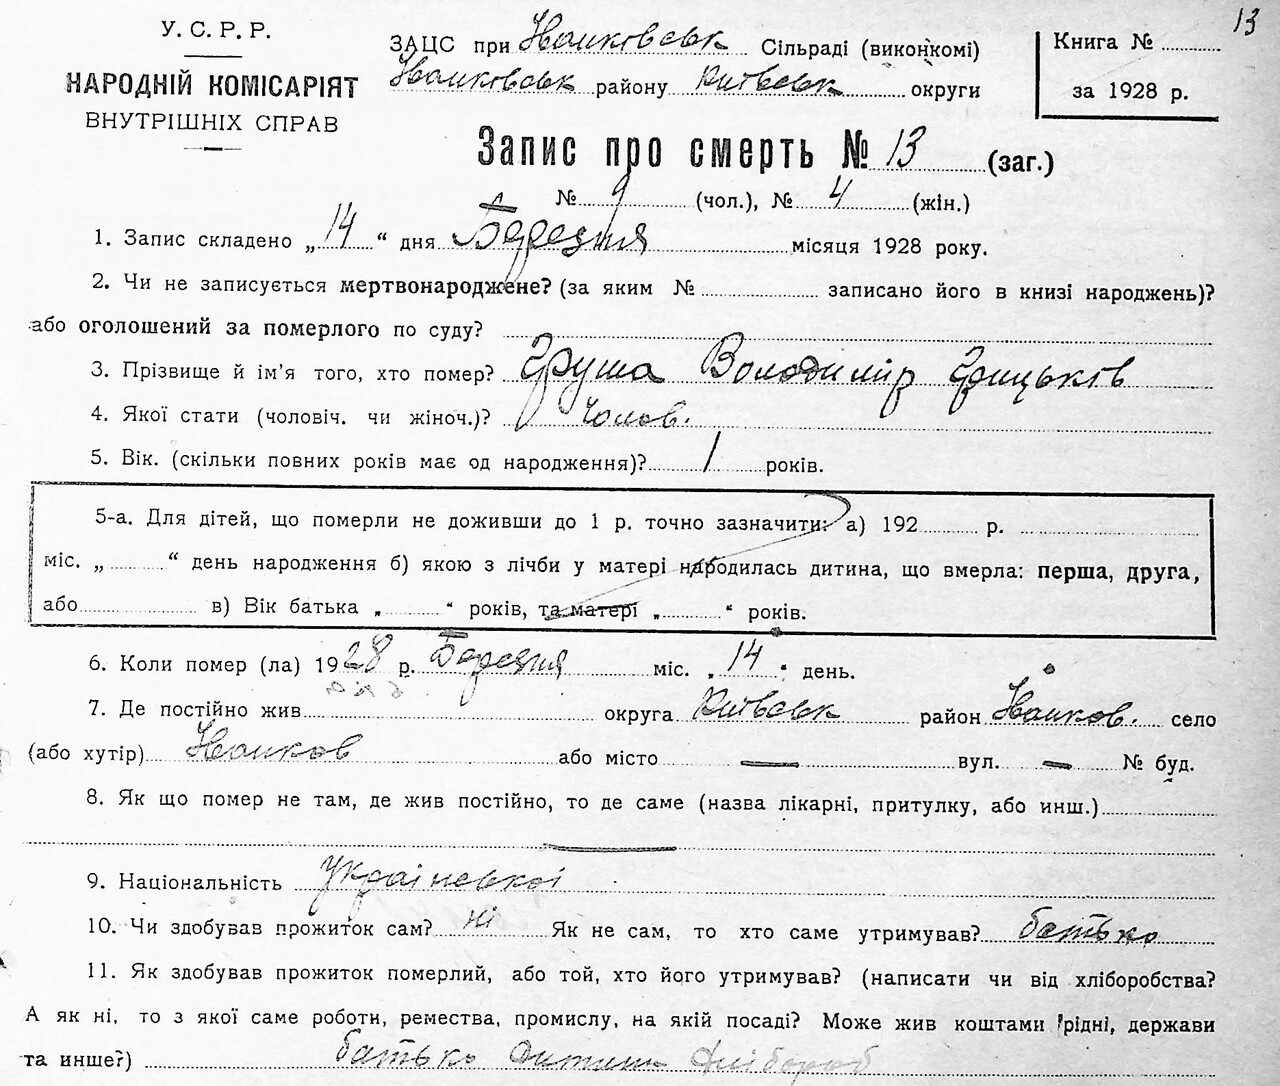 13
У. С. Р. Р.
НАРОДНІЙ КОМІСАРІЯТ
ВНУТРІШНІХ СПРАВ
ЗАЦС при Іванковськ Сільраді (виконкомі)
Іванковськ району Київськ округи
Книга №
за 1928 р.
Запис про смерть № 13 (заг.)
№ 9 (чол.), № 4 (жін.)
1. Запис складено „14“ дня Березня місяця 1928 року.
2. Чи не записується мертвонароджене? (за яким № записано його в книзі народжень)?
або оголошений за померлого по суду?
3. Прізвище й ім'я того, хто помер? Груша Володимир Грицьків
4. Якої стати (чоловіч. чи жіноч.)? Чолов.
5. Вік. (скільки повних років має од народження)? 1 років.
5-а. Для дітей, що померли не доживши до 1 р. точно зазначити: а) 192 р.
міс. „ “ день народження б) якою з лічби у матері народилась дитина, що вмерла: перша, друга,
або в) Вік батька „ “ років, та матері „ “ років.
6. Коли помер (ла) 1928 р. Березня міс. „14“ день.
7. Де постійно жив округа Київськ район Іванков. село
(або хутір) Іванков або місто — вул. — № буд.
8. Як що помер не там, де жив постійно, то де саме (назва лікарні, притулку, або инш.)
—
9. Національність Української
10. Чи здобував прожиток сам? ні Як не сам, то хто саме утримував? батько
11. Як здобував прожиток померлий, або той, хто його утримував? (написати чи від хліборобства?
А як ні, то з якої саме роботи, ремества, промислу, на якій посаді? Може жив коштами рідні, держави
та инше?) батько дитини хлібороб